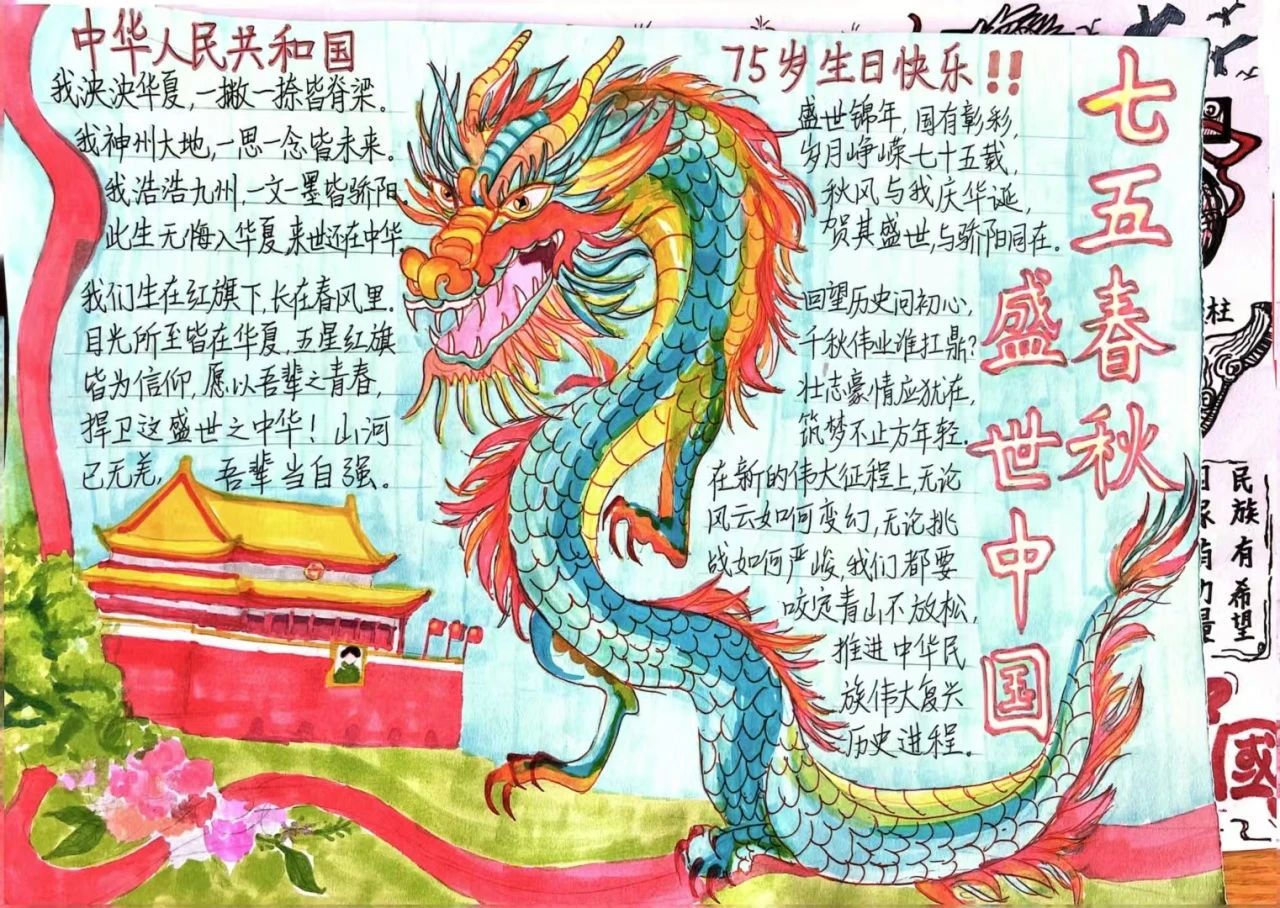 中华人民共和国
我泱泱华夏,一撇一捺皆脊梁。
我神州大地,一思一念皆未来。
我浩浩九州,一文一墨皆骄阳。
此生无悔入华夏,来世还在中华。
我们生在红旗下,长在春风里.
目光所至皆在华夏,五星红旗
皆为信仰,愿以吾辈之青春,
捍卫这盛世之中华!山河
已无恙, 吾辈当自强。
75岁生日快乐!!
盛世锦年 国有彰彩,
岁月峥嵘七十五载,
秋风与我庆华诞,
贺其盛世,与骄阳同在。
回望历史问初心,
千秋伟业谁扛鼎?
壮志豪情应犹在,
筑梦不止方年轻.
在新的伟大征程上,无论
风云如何变幻,无论挑
战如何严峻,我们都要
咬定青山不放松,
推进中华民
族伟大复兴
历史进程。
七五春秋
盛世中国
柱
民族有希望
國